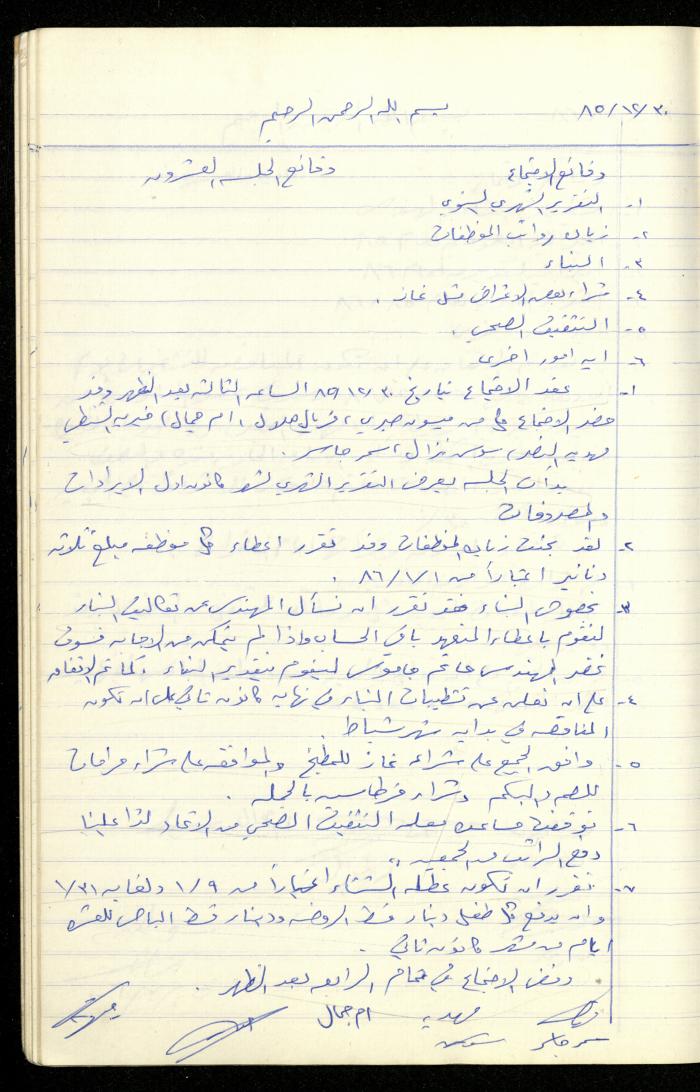 ٨٥/١٢/٣٠ بسم الله الرحمن الرحيم
وقائع الاجتماع وقائع الجلسة العشرون
١- التقرير الشهري السنوي
٢- زيادة رواتب الموظفات
٣- البناء
٤- شراء بعض الاغراض مثل غاز .
٥- التثقيف الصحي .
٦- اية امور اخرى
١- عقد الاجتماع بتاريخ ٨٥/١٢/٣٠ الساعة الثالثة بعد الظهر وقد
حضر الاجتماع كل من ميسون صبري ، فريال هلال ، ام جمال ، خيرية
مهدية ، سوسن نزال ، سمر جاسر .
بدأت الجلسة بعرض التقرير الشهري لشهر كانون اول الايرادات
والمصروفات
٢- لقد بحثت زيادة الموظفات وقد تقرر اعطاء كل موظفة مبلغ ثلاثة
دنانير اعتباراً من ٨٦/١/١ .
٣- بخصوص البناء فقد تقرر ان نسأل المهندس عن تكاليف البناء
لنقوم باعطاء المتعهد باقي الحساب واذا لم يتمكن من الاجابة فسوف
نحضر المهندس حاتم ليقوم بتقدير البناء . كما تم الاتفاق
٤- على ان نعلن عن تشطيبات البناء في نهاية كانون ثاني على ان تكون
المناقصة في بداية شهر شباط .
٥- وافق الجميع على شراء غاز للمطبخ والموافقة على شراء
للصم والبكم وشراء قرطاسية بالجملة .
٦- توقفت مساعدة معلمة التثقيف الصحي من الاتحاد لذا علينا
دفع الراتب من الجمعية .
٧- تقرر ان تكون عطلة الشتاء اعتباراً من ١/٩ ولغاية ١/٣١
وان يدفع كل طفل دينار قسط الروضة ودينار قسط الباص للعشرة
ايام من شهر كانون ثاني .
وفض الاجتماع في تمام الرابعة بعد الظهر .
مهدية ام جمال
سمر جاسر سوسن